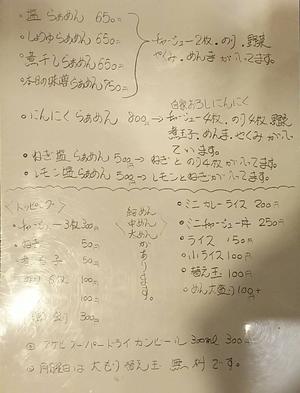 ・塩らぁめん 650円
・しょうゆらぁめん 650円
・煮干しらぁめん 650円
・本日の味噌らぁめん 750円
チャーシュー2枚・のり・野菜
やくみ・めんまがついてます。
自家おろしにんにく
・にんにくらぁめん 800円→チャーシュー4枚・のり4枚 野菜
煮玉子・めんま・やくみがつい
ています。
・ねぎ塩らぁめん 500円→ねぎとのり4枚がついてます。
・レモン塩らぁめん 500円→レモンとねぎがついてます。
<トッピング>
・チャーシュー3枚 300円
・ねぎ 50円
50円
100円
100円
100円
細めん
中めん
太めん
があります。
・ミニカレーライス 200円
・ミニチャーシュー丼 250円
・ライス 150円
・小ライス 100円
・替え玉 100円
・めん大盛り 100円
アサヒスーパードライ カンビール 300ml 300円
月曜日は大もり 替え玉 無料です。